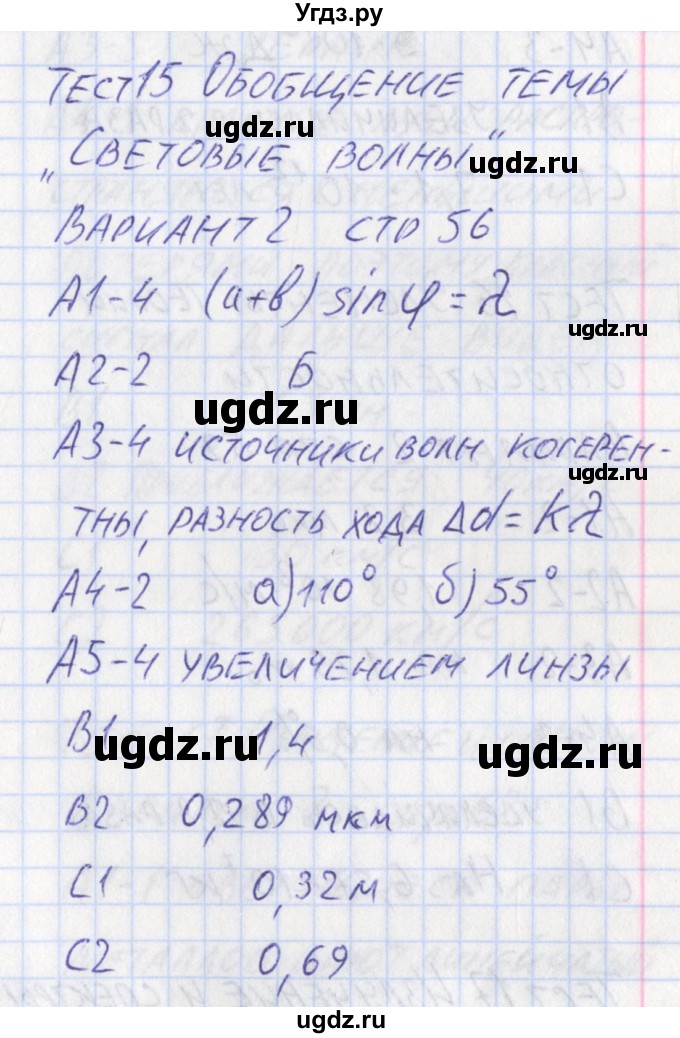 Угдз.ру
ТЕСТ 15 ОБОБЩЕНИЕ ТЕМЫ
ugdz.ru
„СВЕТОВЫЕ ВОЛНЫ"
ugdz.ru
ВАРИАНТ 2 СТР 56
А1-4 (а+в) sin φ = λ
ugdz.ru
А2-2 Б
ugdz.ru
А3-4 ИСТОЧНИКИ ВОЛН КОГЕРЕН-
ugdz.ru
ТНЫ, РАЗНОСТЬ ХОДА Δd = kλ
А4-2 а) 110° б) 55°
А5-4 УВЕЛИЧЕНИЕМ ЛИНЗЫ
В1 1,4
ugdz.ru ugdz.ru
В2 0,289 мкм
С1 0,32 м
С2 0,69
ugdz.ru